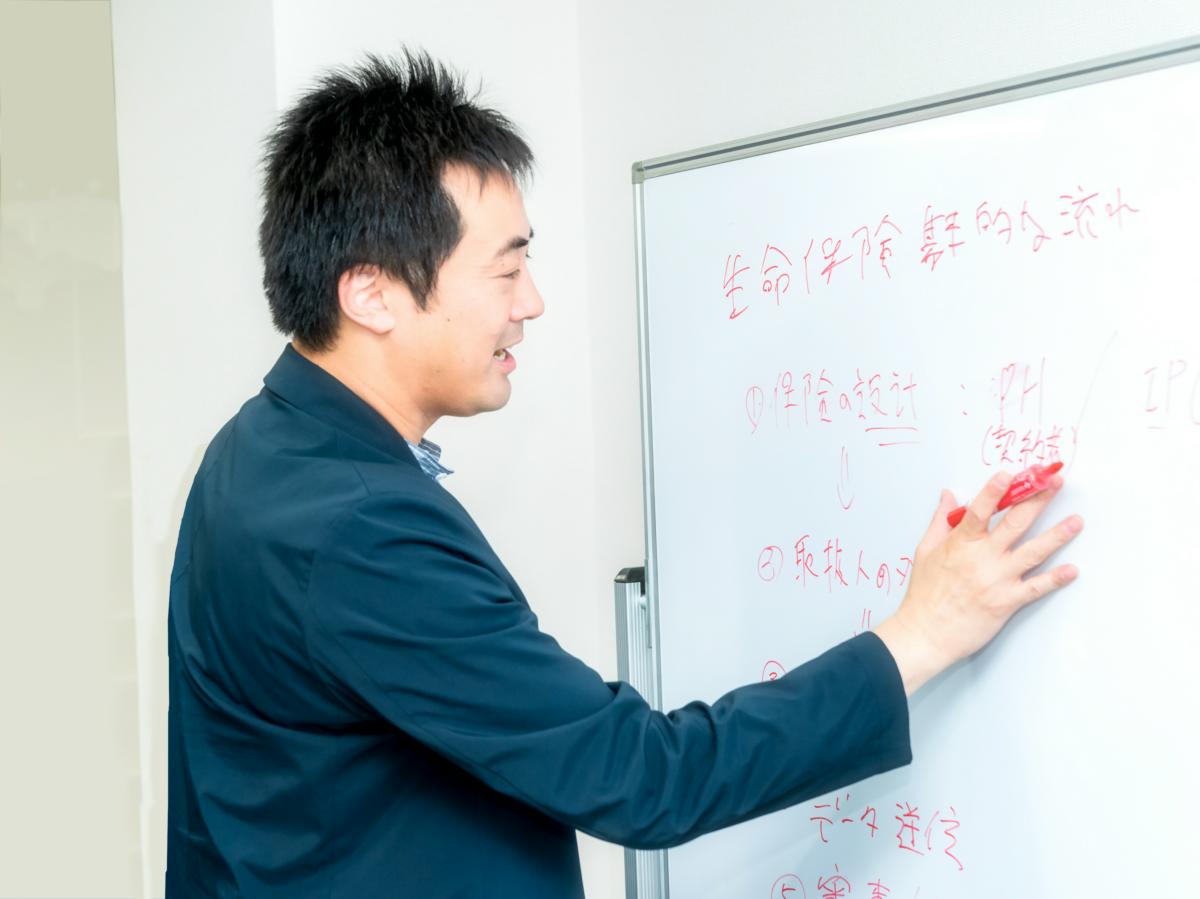 生命保険 基本的な流れ
①保険の設計 : PH / IP
(契約者)
↓
②取扱人の
③
データ送信
⑤審査